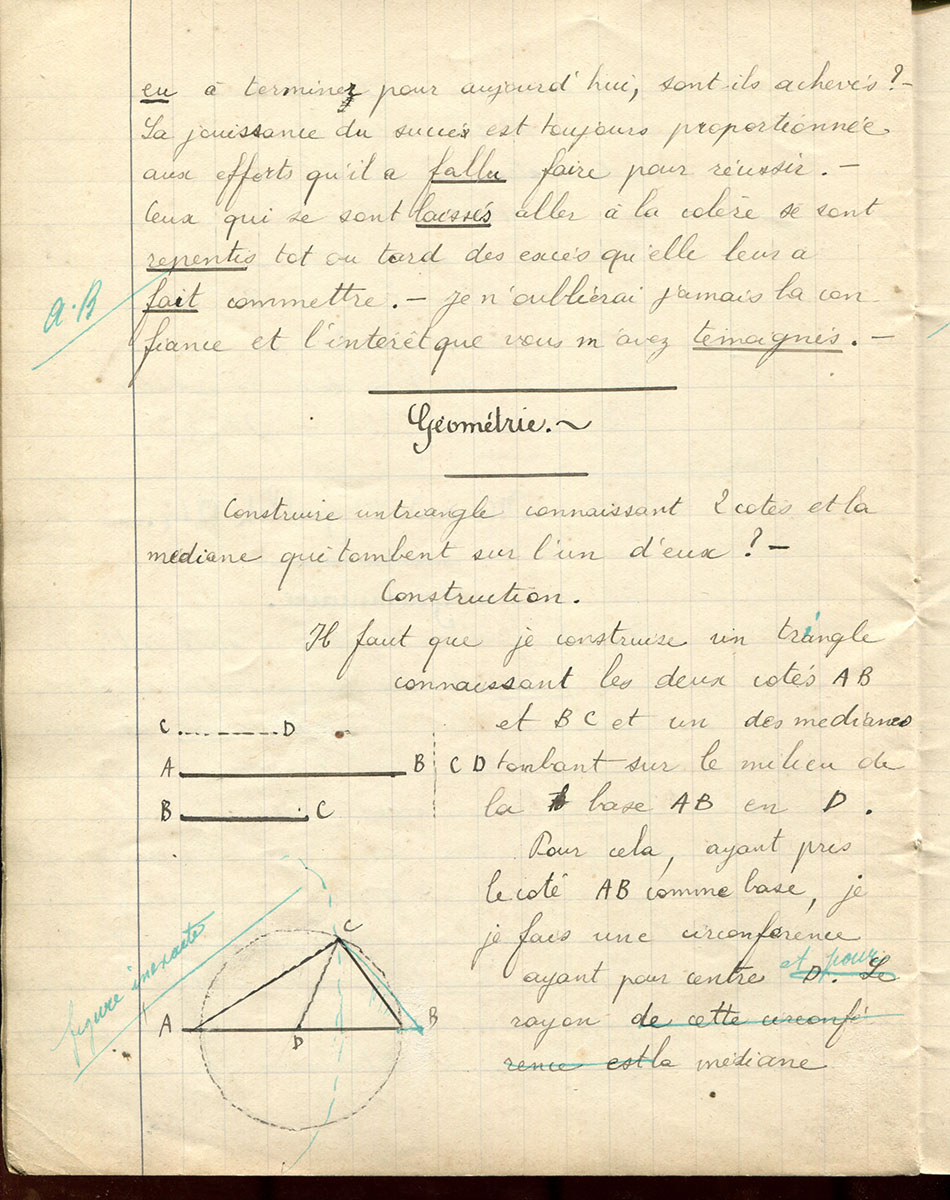 eu à terminez pour aujourd'hui, sont ils achevés? -
La jouissance du succès est toujours proportionnée
aux efforts qu'il a fallu faire pour réussir. -
Ceux qui se sont laissés aller à la colère se sont
repentis tot ou tard des excès qu'elle leur a
a.B
fait commettre. - je n'oublierai jamais la con
fiance et l'intérêt que vous m'avez témoignés. -
Géométrie. ~
Construire un triangle connaissant 2 cotés et la
mediane qui tombent sur l'un d'eux ? -
Construction.
Il faut que je construise un triangle
connaissant les deux cotés AB
et BC et un des medianes
C D
A B
CD tombant sur le milieu de
B C
la base AB en D.
Pour cela, ayant pris
le coté AB comme base, je
je fais une circonférence
figure inexacte
et pour
ayant pour centre D. Le
rayon de cette circonfé
rence est la médiane
C
A D B